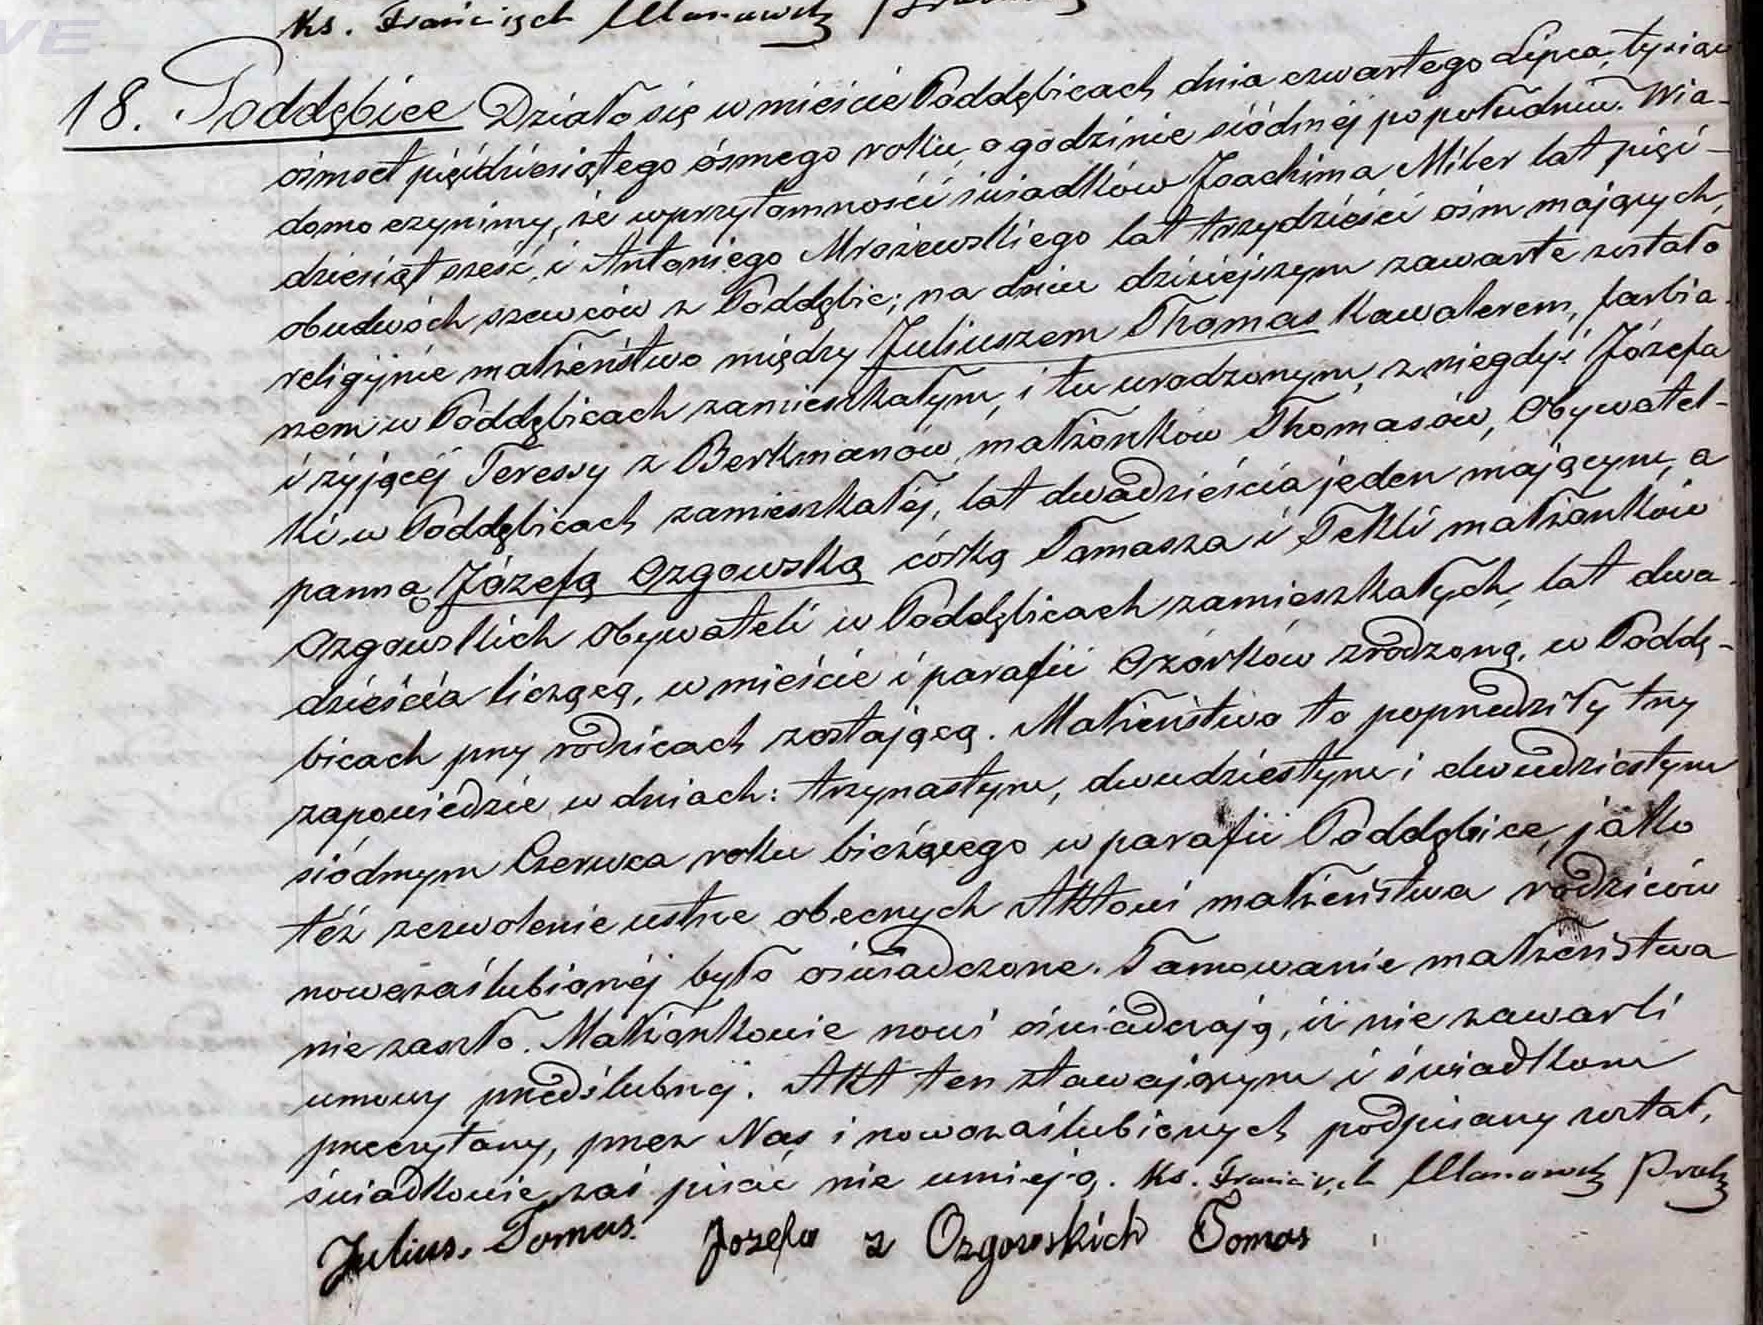 VE
Ks. Franciszek
18. Poddębice Działo się w mieście Poddębicach dnia czwartego Lipca, tysiąc
ośmset pięśdziesiątego ósmego roku, o godzinie siódméj popołudniu. Wia-
domo czynimy, że w przytomności świadków Joachima Miler lat pięć-
dziesiąt sześć, i Antoniego Mrożewskiego lat trzydzieści ośm mających,
obudwóch szewców z Poddębic; na dniu dzisiejszym zawarte zostało
religijnie małżeństwo między Juliuszem Thomas Kawalerem, farbia-
rzem w Poddębicach zamieszkałym, i tu urodzonym, z niegdyś Józefa
i żyjącéj Teressy z Berkmanów, małżonków Thomasów, Obywatel-
ki w Poddębicach zamieszkałéj, lat dwadzieścia jeden mającym, a
panną Józefą Ozgowską córką Tomasza i Tekli małżonków
Ozgowskich Obywateli w Poddębicach zamieszkałych, lat dwa-
dzieścia liczącą, w mieście i parafii Ozorków zrodzoną, w Poddę-
bicach przy rodzicach zostającą. Małżeństwo to poprzedziły trzy
zapowiedzie w dniach: trzynastym, dwudziestym i dwudziestym
siódmym Czerwca roku bieżącego w parafii Poddębice, jako
téż zezwolenie ustne obecnych Aktowi małżeństwa rodziców
nowozaślubionéj było oświadczone. Tamowanie małżeństwa
nie zaszło. Małżonkowie nowi oświadczają, iż nie zawarli
umowy przedślubnéj. Akt ten stawającym i świadkom
przeczytany, przez Nas i nowozaślubionych podpisany został,
świadkowie zaś pisać nie umieją. Ks. Franciszek
Julius. Tomas. Jozefa z Ozgowskich Tomas